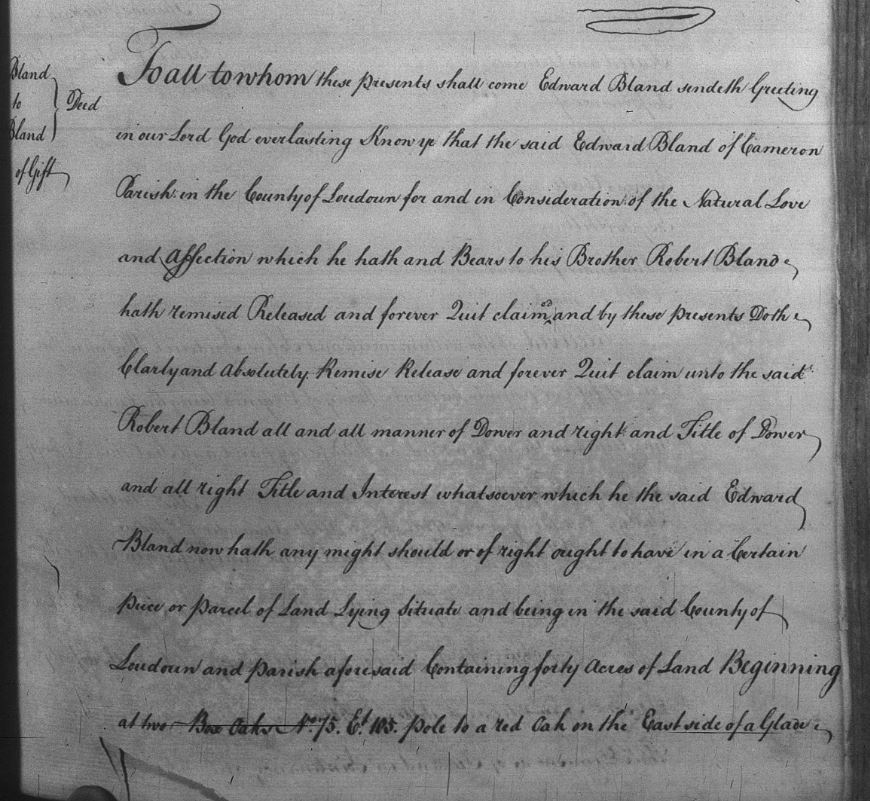 Bland
to
Bland
Deed
of Gift
To all to whom these presents shall come Edward Bland sendeth Greeting
in our Lord God everlasting Know ye that the said Edward Bland of Cameron
Parish in the County of Loudoun for and in Consideration of the Natural Love
and Affection which he hath and Bears to his Brother Robert Bland
hath remised Released and forever Quit claimed and by these presents Doth
Clarly and absolutely Remise Release and forever Quit claim unto the said
Robert Bland all and all manner of Dower and right and Title of Dower
and all right Title and Interest whatsoever which he the said Edward
Bland now hath any might should or of right ought to have in a Certain
peice or parcel of Land Lying Situate and being in the said County of
Loudoun and parish aforesaid Containing forty Acres of Land Beginning
at two Box Oaks No. 75. Et. 105. pole to a red Oak on the East side of a Glade